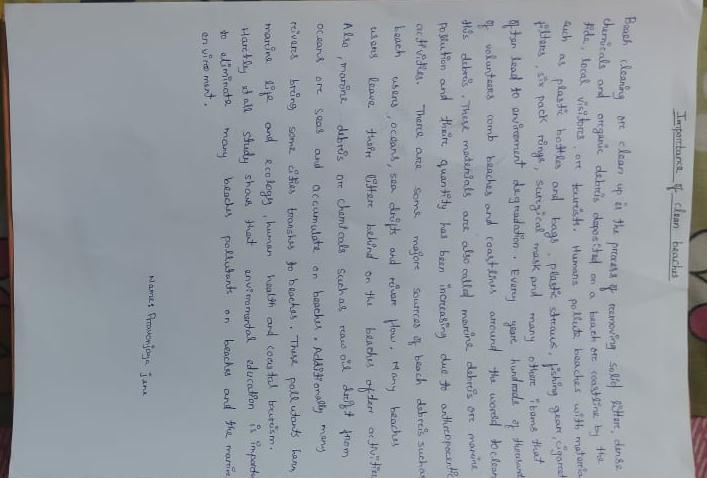 Importance of clean beaches
Beach cleaning orc clean up is the process of removing solid litter, dense
chemicals and organic debris deposited on a beach orc coastline by the
tide, local visitors, orc tourists. Humans pollute beaches with materia
such as plastic bottles and bags, plastic straws, fishing gear, cigaret
filters, six pack rings, surgical mask and many other items that
often lead to enviroment degradation. Every year hundreds of thousand
of volunteers comb beaches and coastlines around the world to clean
this debris. These materials are also called marine debris orc marine
pollution and their quantity has been increasing due to anthropocentic
activities. There are some major sources of beach debris such as
beach users, oceans, sea drifts and river flow. Many beaches
users leave their litter behind on the beaches after activities
Also, marine debris orc chemicals such as raw oil drift from
oceans orc seas and accumulate on beaches. Additionally many
rivers bring some cities trashes to beaches. These pollutants harm
marine life and ecology, human health and coastal tourism.
Hartley et all study shows that enviromental education is importa
to eliminate many beaches pollutants on beaches and the marine
enviroment.
Name: